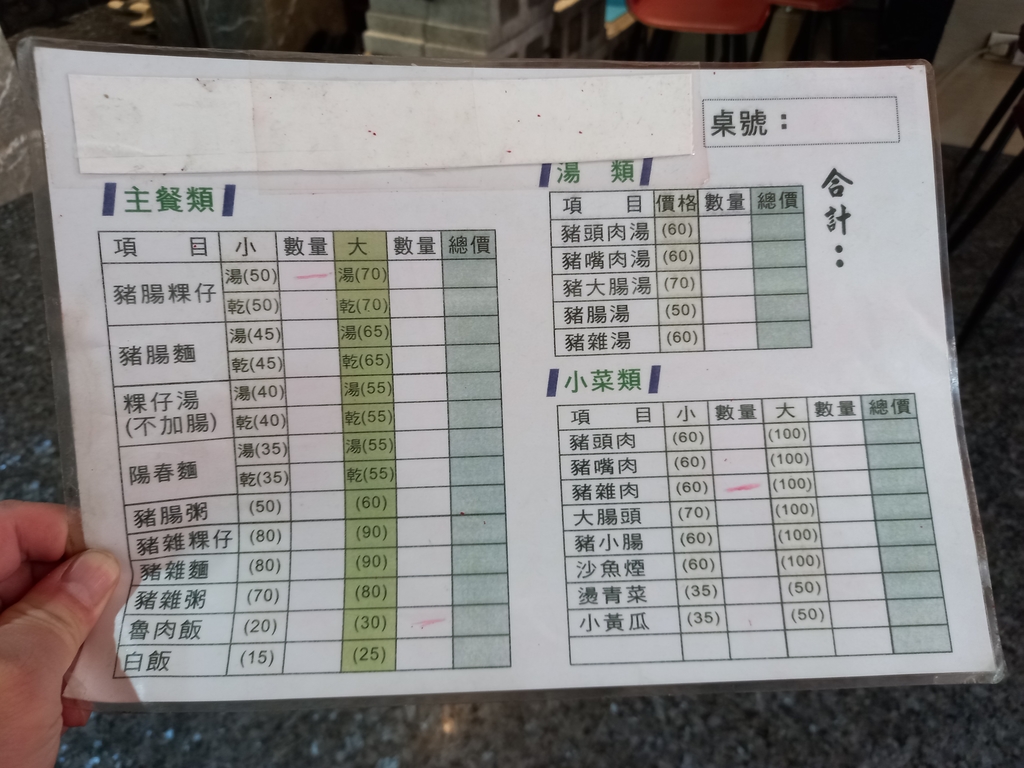 桌號：
合計：
主餐類
項目 小 數量 大 數量 總價
豬腸粿仔 湯(50) 湯(70)
乾(50) 乾(70)
豬腸麵 湯(45) 湯(65)
乾(45) 乾(65)
粿仔湯(不加腸) 湯(40) 湯(55)
乾(40) 乾(55)
陽春麵 湯(35) 湯(55)
乾(35) 乾(55)
豬腸粥 (50) (60)
豬雜粿仔 (80) (90)
豬雜麵 (80) (90)
豬雜粥 (70) (80)
魯肉飯 (20) (30)
白飯 (15) (25)
湯類
項目 價格 數量 總價
豬頭肉湯 (60)
豬嘴肉湯 (60)
豬大腸湯 (70)
豬腸湯 (50)
豬雜湯 (60)
小菜類
項目 小 數量 大 數量 總價
豬頭肉 (60) (100)
豬嘴肉 (60) (100)
豬雜肉 (60) (100)
大腸頭 (70) (100)
豬小腸 (60) (100)
沙魚煙 (60) (100)
燙青菜 (35) (50)
小黃瓜 (35) (50)